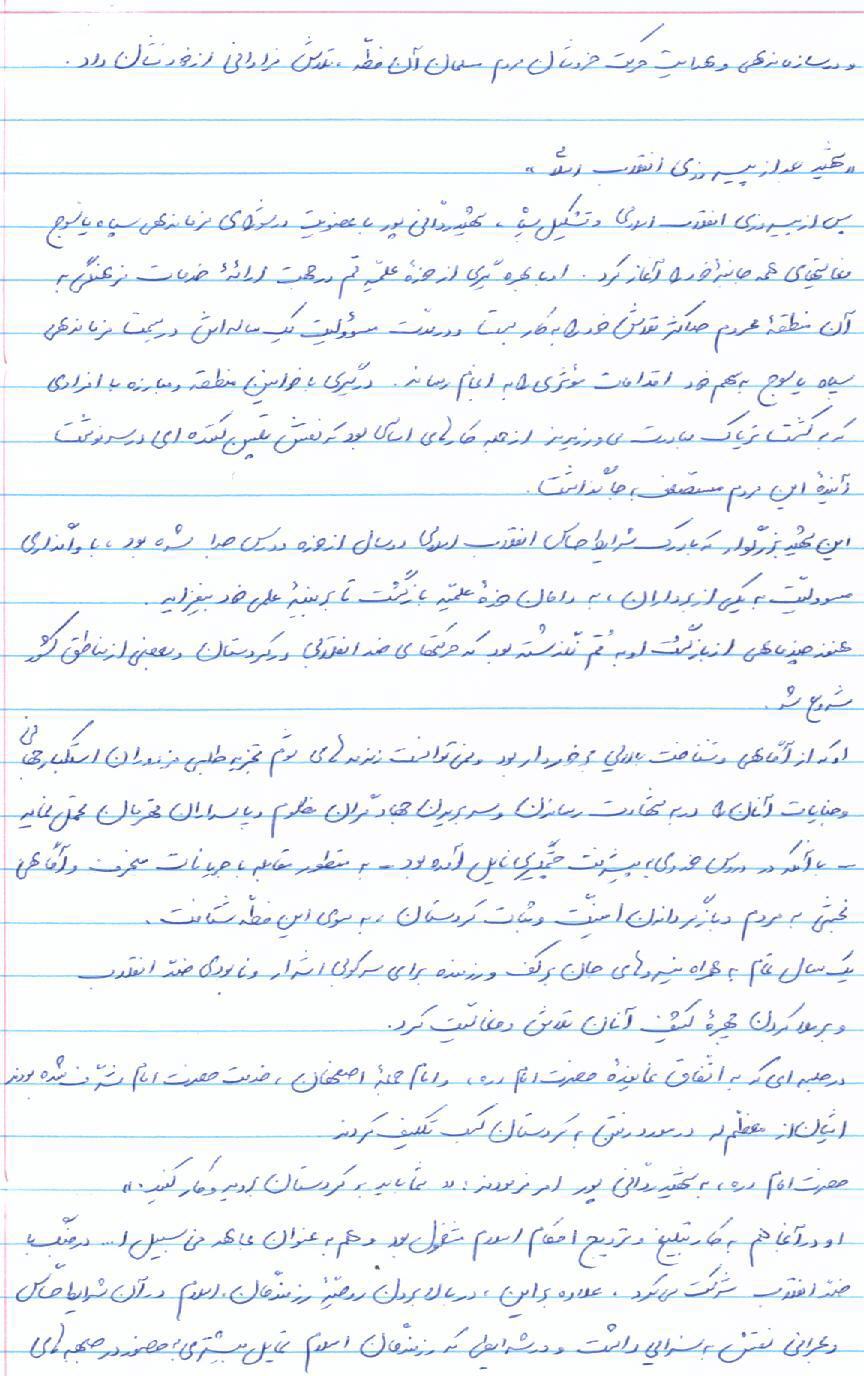 و در سازماندهی و هدایت حرکت خروشان مردم مسلمان آن خطّه، تلاش فراوانی از خود نشان داد.
«شهید بعد از پیروزی انقلاب اسلامی»
پس از پیروزی انقلاب اسلامی و تشکیل سپاه، شهید ردّانی پور با عضویت در شورای فرماندهی سپاه یاسوج
فعالیتهای همه جانبهٔ خود را آغاز کرد. او با بهره گیری از حوزهٔ علمیّه قم در جهت ارائهٔ خدمات فرهنگی به
آن منطقهٔ محروم حداکثر تلاش خود را به کار بست و در مدّت مسؤولیت یک ساله‌اش در سمت فرماندهی
سپاه یاسوج به سهم خود اقدامات مؤثری را به انجام رساند. درگیری با خوانین منطقه و مبارزه با افرادی
که به کشت تریاک مبادرت می ورزیدند از جمله کارهای اساسی بود که نقش تعیین کننده ای در سرنوشت
آیندهٔ این مردم مستضعف به جا گذاشت.
این شهید بزرگوار که با درک شرایط حساس انقلاب اسلامی دو سال از حوزه و درس جدا شده بود، با واگذاری
مسوولیّت به یکی از برادران، به دامان حوزهٔ علمیّه بازگشت تا بر بنیهٔ علمی خود بیفزاید.
هنوز چند ماهی از بازگشت او به قم نگذشته بود که حرکتهای ضد انقلابی در کردستان و بعضی از مناطق کشور
شروع شد.
او که از آگاهی و شناخت بالایی برخوردار بود و نمی توانست زمزمه های شوم تجزیه طلبی مزدوران استکبار جهانی
و جنایات آنان را در به شهادت رساندن و سر بریدن جهادگران مظلوم و پاسداران قهرمان تحمل نماید
– با آنکه در دروس حوزوی به پیشرفت چشمگیری نایل آمده بود – به منظور مقابله با جریانات منحرف و آگاهی
بخشی به مردم و بازگرداندن امنیّت و ثبات کردستان، به سوی این خطّه شتافت.
یک سال تمام به همراه نیروهای جان برکف و رزمنده برای سرکوبی اشرار و نابودی ضدّ انقلاب
و برملا کردن چهرهٔ کثیف آنان تلاش و فعالیّت کرد.
در جلسه ای که به اتّفاق نمایندهٔ حضرت امام «ره» و امام جمعهٔ اصفهان، خدمت حضرت امام شرّف شده بودند
ایشان از معظّم له در مورد رفتن به کردستان کسب تکلیف کردند
حضرت امام «ره» به شهید ردّانی پور امر فرمودند: «شما باید به کردستان بروید و کار کنید.»
او در آنجا هم به کار تبلیغ و ترویج احکام اسلام مشغول بود و هم به عنوان مجاهد فی سبیل ا... در جنگ با
ضدّ انقلاب شرکت می کرد. علاوه بر این، در بالا بردن روحیّهٔ رزمندگان اسلام در آن شرایط حسّاس
و بحرانی نقش به سزایی داشت و در شرایطی که رزمندگان اسلام تمایل بیشتری به حضور در جبهه های